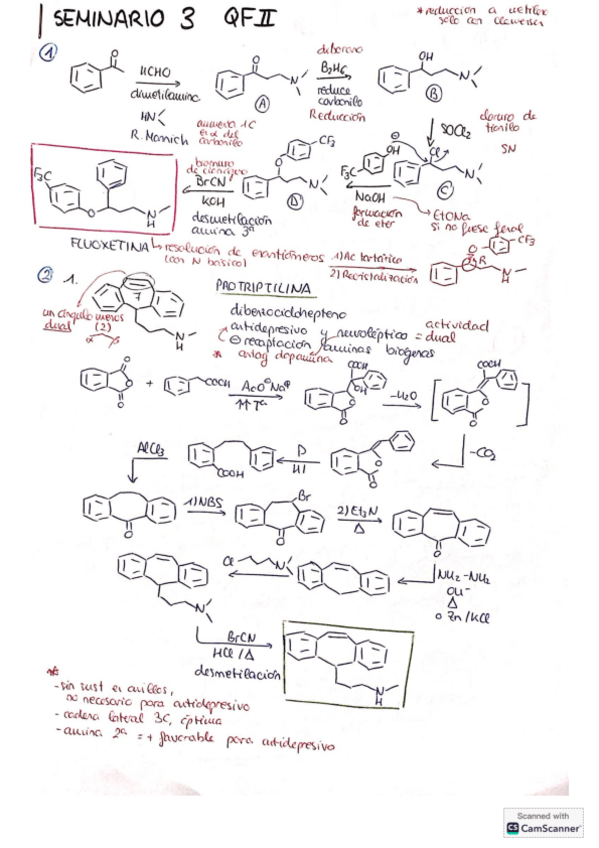 SEMINARIO 3 QFII
* reducción a metileno
solo con Clemmensen
①
O
HCHO
dimetilamina
HN
R. Mannich
O
N
Ⓐ
aumento 1C
en α del
carbonilo
diborano
B2H6
reduce
carbonilo
Reducción
OH
N
Ⓑ
SOCl2
cloruro de
tionilo
SN
Cl
N
Ⓒ
F3C
OH
NaOH
formación
de eter
EtONa
si no fuese fenol
O
CF3
N
Ⓓ
bromuro
de cianógeno
BrCN
KOH
desmetilación
amina 3ª
F3C
O
N
H
FLUOXETINA
resolución de enantiómeros
(con N básico)
1) Ac tartárico
2) Recristalización
O
CF3
R
N
H
② 1.
7
N
H
un cíngulo menos
dual (2)
PROTRIPTILINA
dibenzociclohepteno
antidepresivo y neuroléptico = dual
actividad
⊖ recaptación aminas biógenas
* antag dopamina
O
O
O
+
COOH
AcO⊖Na⊕
↑↑ Tª
COOH
OH
O
O
-H2O
COOH
O
O
-CO2
O
O
P
HI
COOH
AlCl3
O
1) NBS
Br
O
2) Et3N
Δ
O
NH2-NH2
OH-
Δ
o Zn/HCl
Cl
N
N
BrCN
HCl/Δ
desmetilación
N
H
*
- sin sust en anillos,
no necesario para antidepresivo
- cadena lateral 3C, óptima
- amina 2ª = + favorable para antidepresivo
Scanned with
CS CamScanner